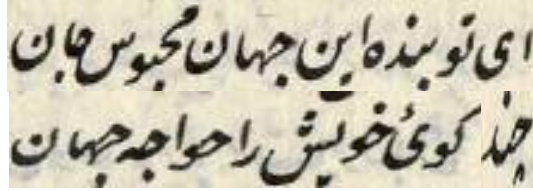 ای تو بنده این جهان محبوس جان
چند گوئی خویش را خواجه جهان